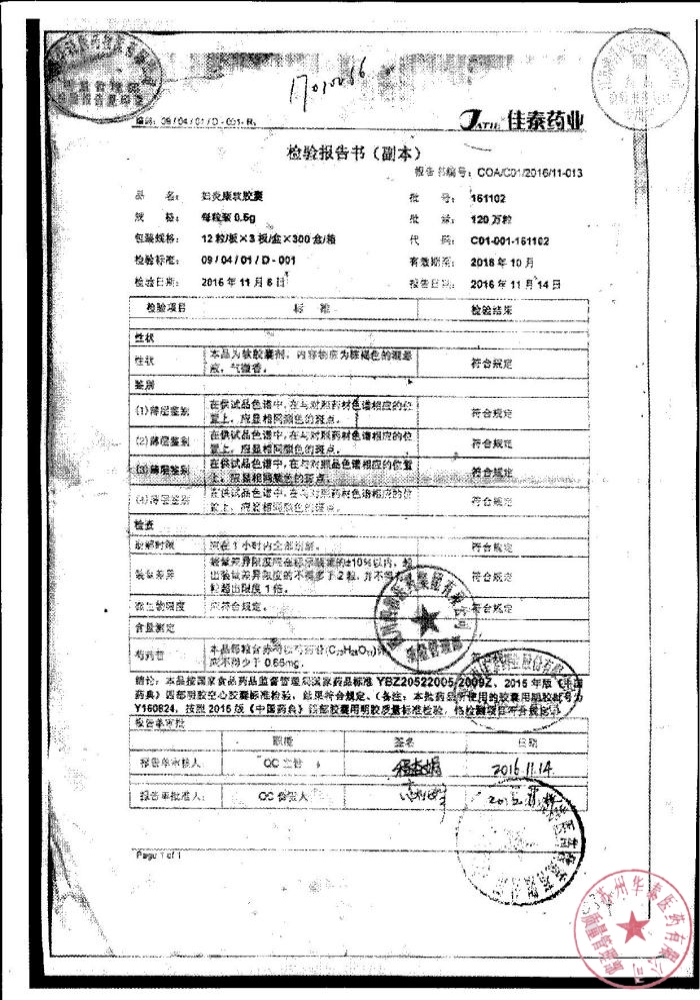 17010066
编号：09/04/01/D-001-R1
JATIE 佳泰药业
检验报告书（副本）
报告书编号：COA/C01/2016/11-013
品 名： 妇炎康软胶囊 批 号： 161102
规 格： 每粒装 0.5g 批 量： 120 万粒
包装规格： 12 粒/板×3 板/盒×300 盒/箱 代 码： C01-001-161102
检验标准： 09/04/01/D-001 有效期至： 2018 年 10 月
检验日期： 2016 年 11 月 6 日 报告日期： 2016 年 11 月 14 日
检验项目 标 准 检验结果
性状
性状 本品为软胶囊剂，内容物应为棕褐色的混悬液，气微香。 符合规定
鉴别
(1)薄层鉴别 在供试品色谱中，在与对照药材色谱相应的位置上，应显相同颜色的斑点。 符合规定
(2)薄层鉴别 在供试品色谱中，在与对照药材色谱相应的位置上，应显相同颜色的斑点。 符合规定
(3)薄层鉴别 在供试品色谱中，在与对照品色谱相应的位置上，应显相同颜色的斑点。 符合规定
(4)薄层鉴别 在供试品色谱中，在与对照药材色谱相应的位置上，应显相同颜色的斑点。 符合规定
检查
崩解时限 应在 1 小时内全部崩解。 符合规定
装量差异 装量差异限度应在标示装量的±10%以内，超出装量差异限度的不得多于 2 粒，并不得有 1 粒超出限度 1 倍。 符合规定
微生物限度 应符合规定。 符合规定
含量测定
芍药苷 本品每粒含赤芍以芍药苷(C₂₃H₂₈O₁₁)计 应不得少于
结论：本品按国家食品药品监督管理局国家药品标准 YBZ20522005-2009Z、2015 年版《中国
药典》四部明胶空心胶囊标准检验，结果符合规定。（备注：本批药品所使用的胶囊用明胶批号为
Y160824，按照 2015 版《中国药典》四部胶囊用明胶质量标准检验，检测项目符合规定）
报告单审批
职能 签名 日期
报告单审核人： QC 主管 2016.11.14
报告单批准人： QC 负责人
Page 1 of 1
苏州华泰医药有限公司
质量管理部